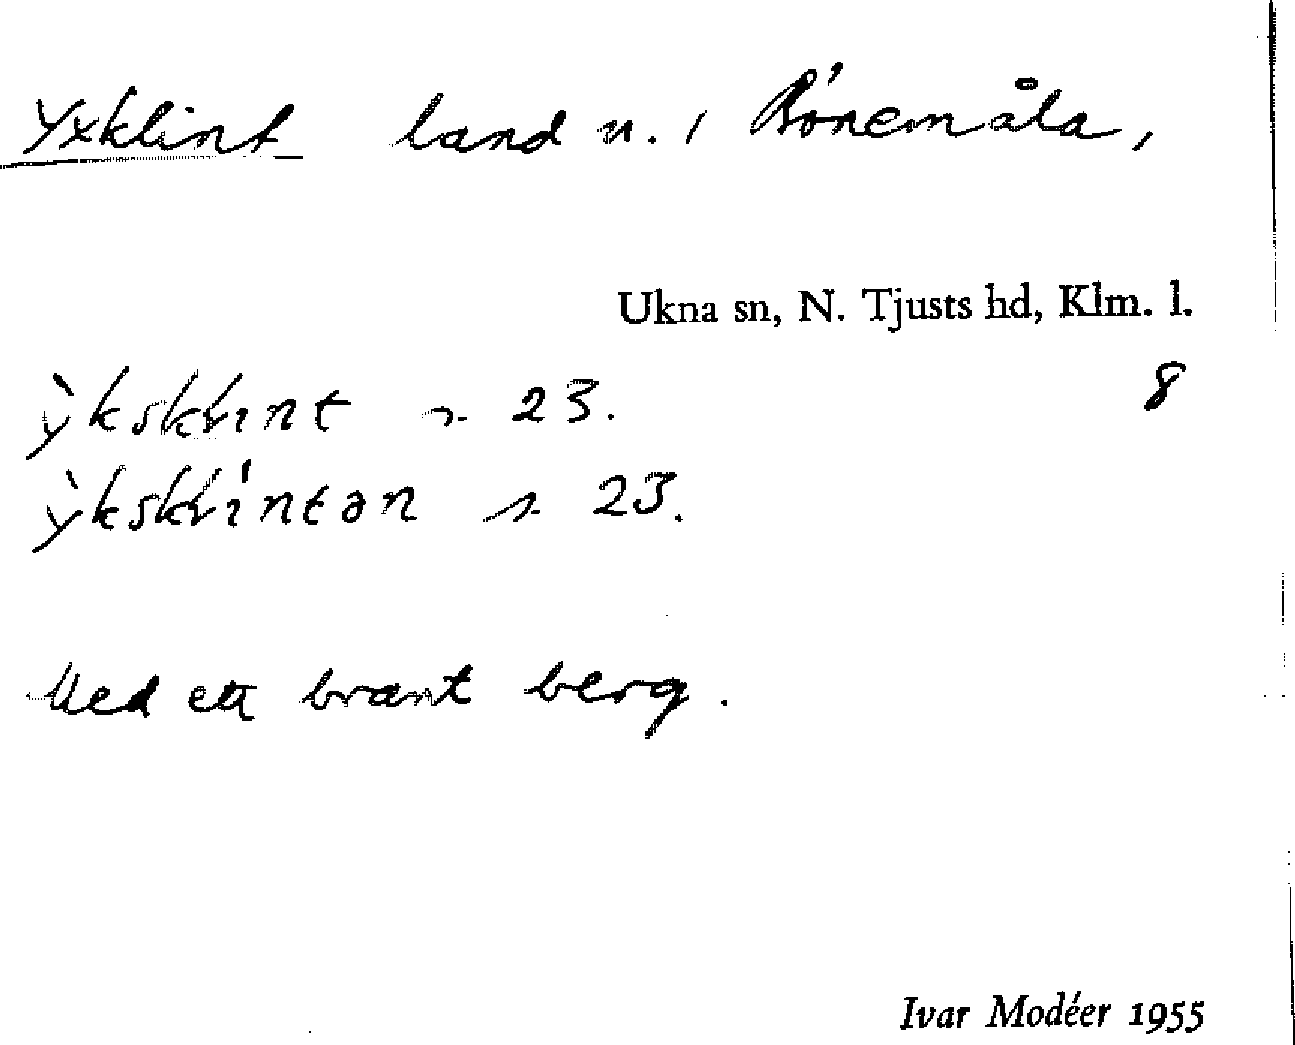 Yxklint land n. i Rönemåla,
Ukna sn, N. Tjusts hd, Klm. l.
8
ỳksklint 23.
ỳksklintən 23.
Med ett brant berg.
Ivar Modéer 1955